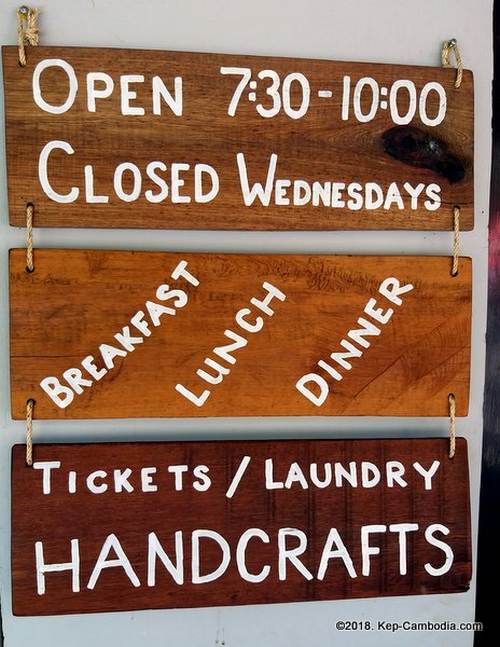 OPEN 7:30-10:00
CLOSED WEDNESDAYS
BREAKFAST
LUNCH
DINNER
TICKETS / LAUNDRY
HANDCRAFTS
©2018. Kep-Cambodia.com